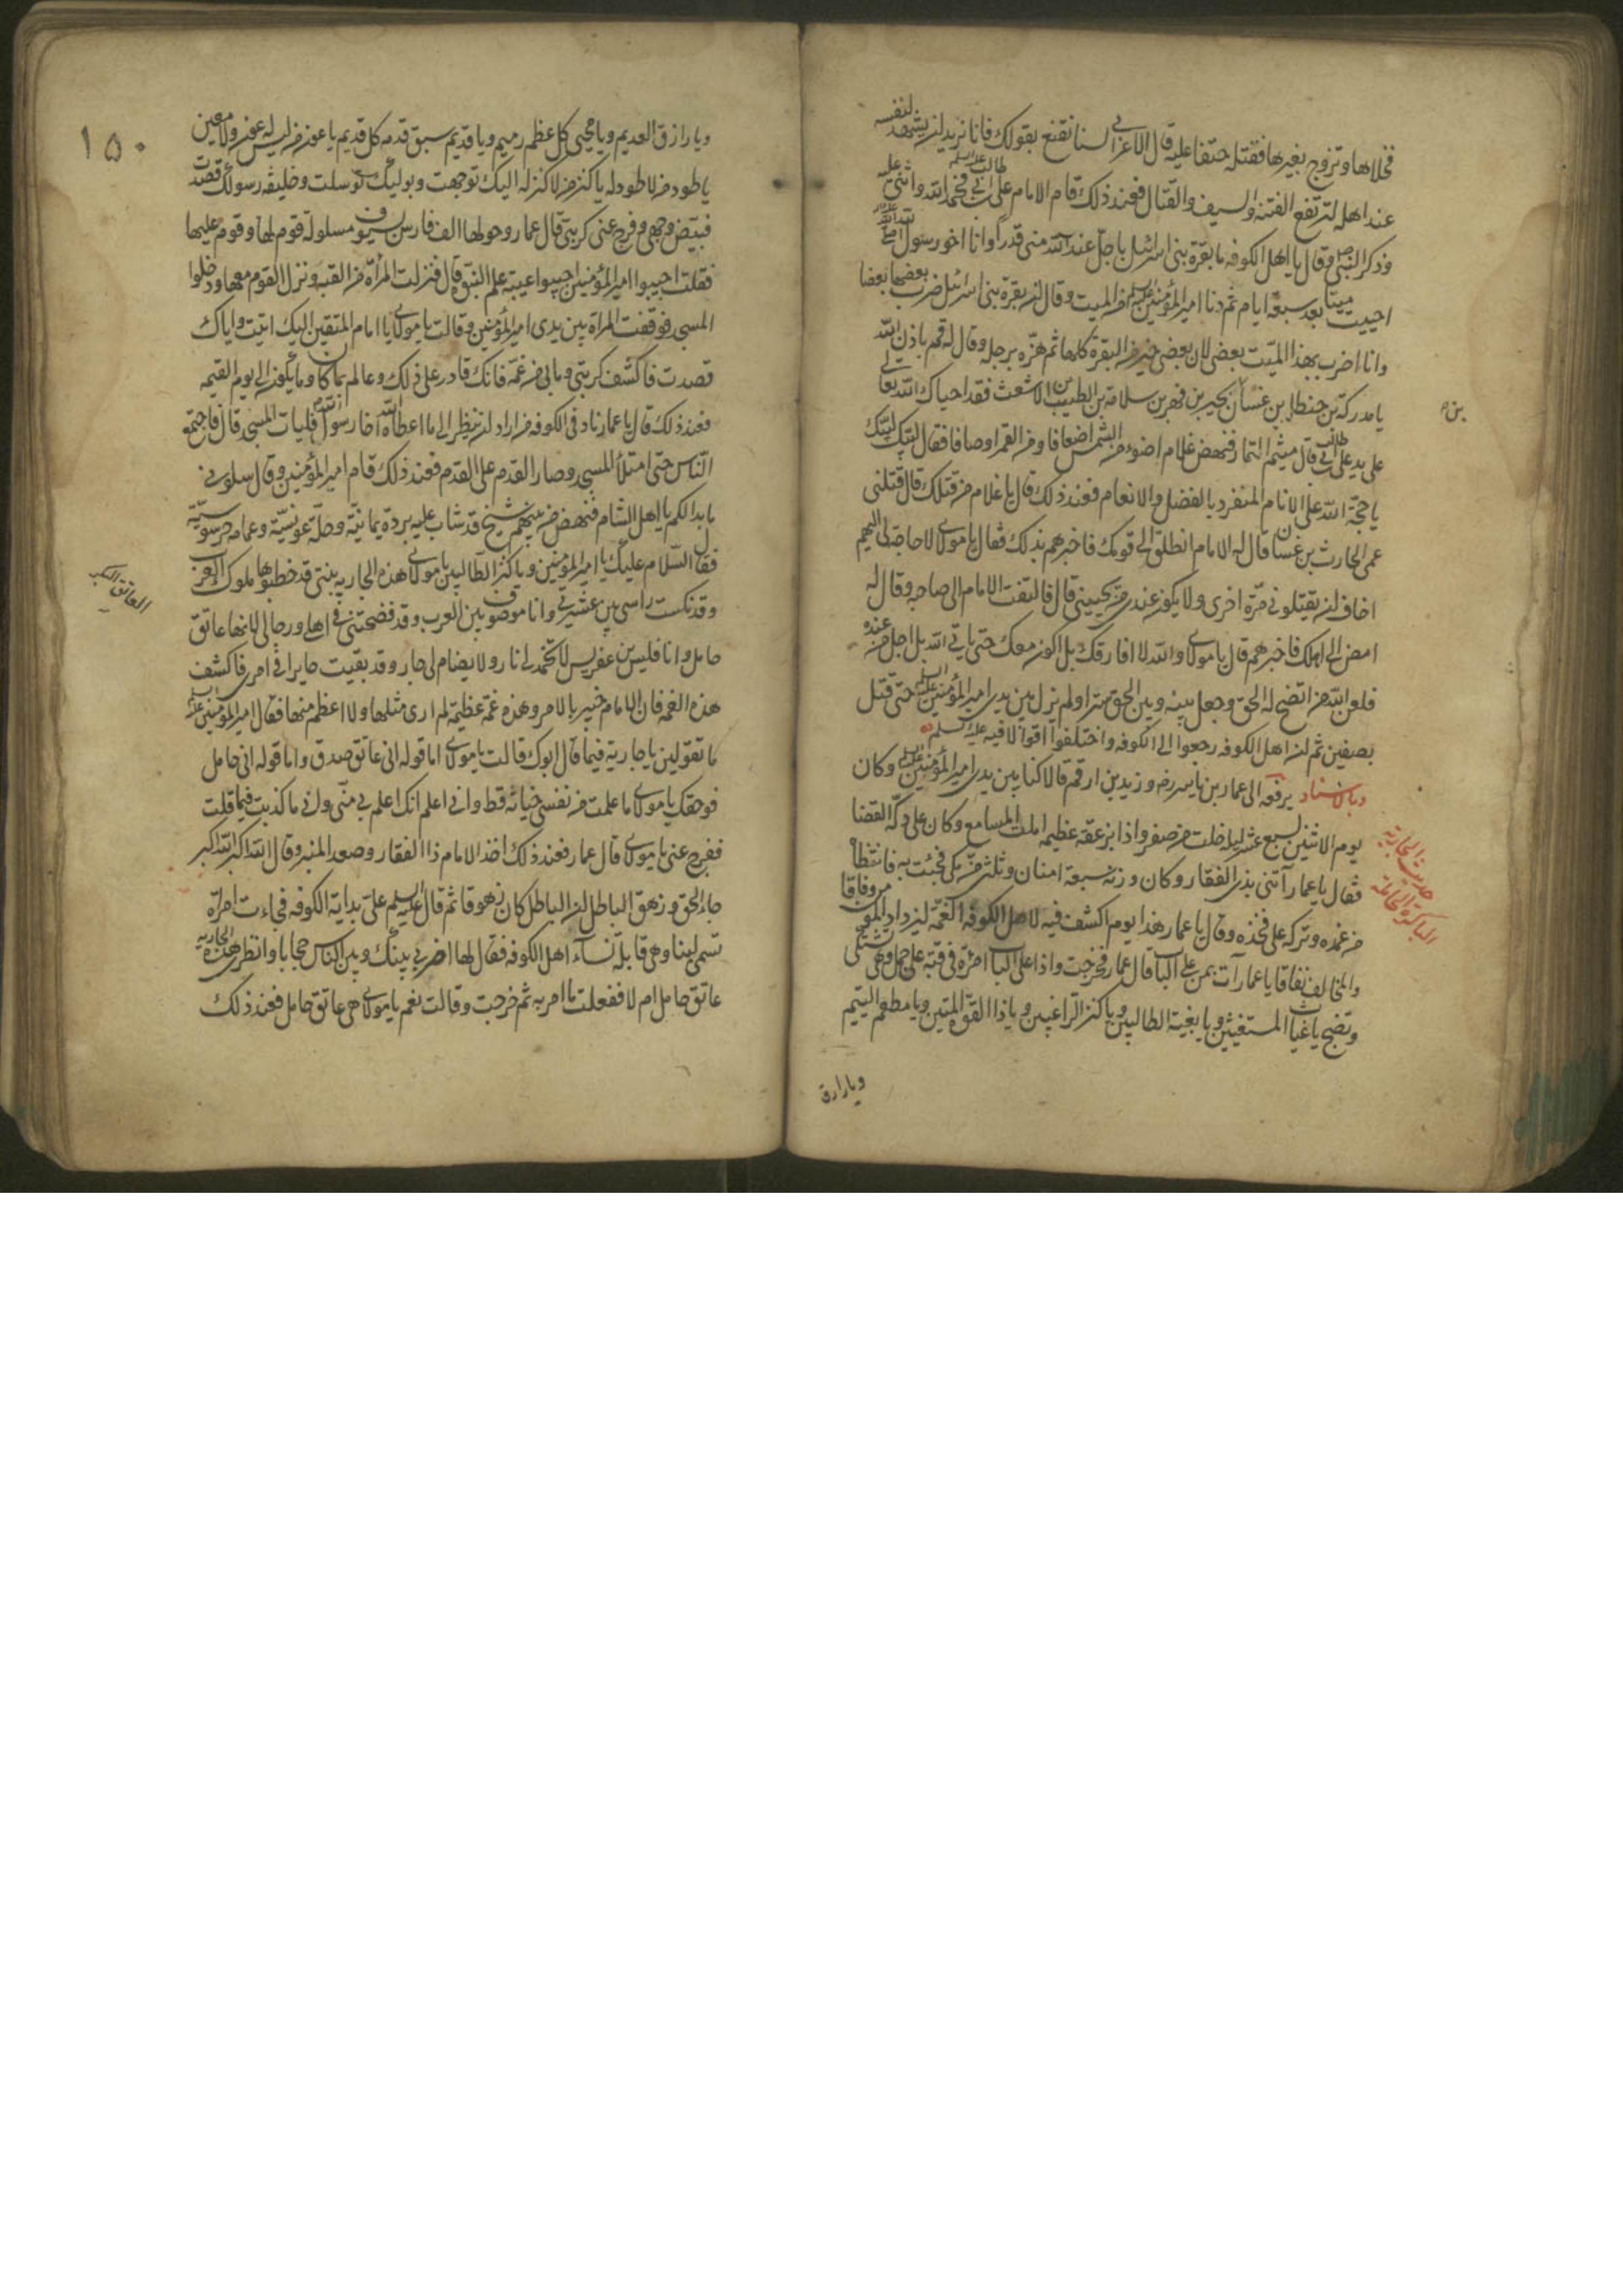 فخلاها وتزوج بغيرها فقتله حنقا عليه قال الاعرابي لسنا نقنع بقولك فانا نريد ان يشهد لنفسه
عند اهله لترتفع الفتنة والسيف والقتال فعند ذلك قام الامام علي بن ابي طالب عليه السلم فحمد الله واثنى عليه
وذكر النبي ص وقال يا اهل الكوفه ما بقرة بني اسرائيل باجل عند الله مني قدرا وانا اخو رسول الله
احييت ميتا بعد سبعة ايام ثم دنا امير المؤمنين عليه السلم من الميت وقال ان بقرة بني اسرائيل ضرب بعضها بعضا
وانا اضرب بهذا الميت بعضي لان بعضي خير من البقرة كلها ثم هزه برجله وقال له قم باذن الله
يا مدركة بن حنظلة بن غسان بن بحير بن فهر بن سلامة بن الطيب بن الاشعث فقد احياك الله تعالى
على يد علي بن ابي طالب قال ميثم التمار فنهض غلام اضوء من الشمس اضعافا ومن القمر اوصافا فقال لبيك لبيك
يا حجة الله على الانام المنفرد بالفضل والانعام فعند ذلك قال يا غلام من قتلك قال قتلني
عمي الحارث بن غسان قال له الامام انطلق الى قومك فاخبرهم بذلك فقال يا مولاي لا حاجة لي اليهم
اخاف ان يقتلوني مرة اخرى ولا يكون عندي من يحييني قال فالتفت الامام الى صاحبه وقال له
امض الى اهلك فاخبرهم قال يا مولاي والله لا افارقك بل اكون معك حتى ياتي الله باجل من عنده
فلعن الله من اتضح له الحق وجعل بينه وبين الحق سترا ولم يزل بين يدي امير المؤمنين عليه السلم حتى قتل
بصفين ثم ان اهل الكوفه رجعوا الى الكوفه واختلفوا اقوالا فيه عليه السلم
وبالاسناد يرفعه الى عمار بن ياسر رضه وزيد بن ارقم قالا كنا بين يدي امير المؤمنين عليه السلم وكان
يوم الاثنين لسبع عشر ليلة خلت من صفر واذا بزعقة عظيمة املت المسامع وكان على دكة القضا
فقال يا عمار آتني بذي الفقار وكان وزنه سبعة امنان وثلثي من مكي فجئت به فانتضاه
من غمده وتركه على فخذه وقال يا عمار هذا يوم اكشف فيه لاهل الكوفة الغمة ليزداد المؤمن وفاقا
والمخالف نفاقا يا عمار آت بمن على الباب قال عمار فخرجت واذا على الباب امرأة في قبة على جمل وهي تشتكي
وتضج يا غياث المستغيثين ويا بغية الطالبين ويا كنز الراغبين ويا ذا القوة المتين ويا مطعم اليتيم
ويا رازق
بن
حديث الجارية
الباكرة الحاملة
١٥٠
ويا رازق العديم ويا محيي كل عظم رميم ويا قديم سبق قدمه كل قديم يا عون من ليس له عون ولا معين
يا طود من لا طود له يا كنز من لا كنز له اليك توجهت وبوليك توسلت وخليفة رسولك قصدت
فبيض وجهي وفرج عني كربتي قال عمار وحولها الف فارس بسيوف مسلولة قوم لها وقوم عليها
فقلت اجيبوا امير المؤمنين اجيبوا عيبة علم النبوة قال فنزلت المرأة من القبة ونزل القوم معها ودخلوا
المسجد فوقفت المرأة بين يدي امير المؤمنين وقالت يا مولاي يا امام المتقين اليك اتيت واياك
قصدت فاكشف كربتي وما بي من غمة فانك قادر على ذلك وعالم بما كان وما يكون الى يوم القيمه
فعند ذلك قال يا عمار ناد في الكوفه من اراد ان ينظر الى ما اعطاه الله اخا رسول الله فليات المسجد قال فاجتمع
الناس حتى امتلأ المسجد وصار القدم على القدم فعند ذلك قام امير المؤمنين وقال سلوني
ما بدا لكم يا اهل الشام فنهض من بينهم شيخ قد شاب عليه بردة يمانية وحلة عونسية وعمامه خرسوسية
فقال السلام عليك يا امير المؤمنين ويا كنز الطالبين يا مولاي هذه الجارية بنتي قد خطبوها ملوك العرب
وقد نكست راسي بين عشيرتي وانا موصوف بين العرب وقد فضحتني في اهلي ورجالي لانها عاتق
حامل وانا فليس بن عفريس لا تخمد لي نار ولا يضام لي جار وقد بقيت حايرا في امري فاكشف
هذه الغمه فان الامام خبير بالامر وهذه غمة عظيمة لم ارى مثلها ولا اعظم منها فقال امير المؤمنين عليه السلم
ما تقولين يا جارية فيما قال ابوك قالت يا مولاي اما قوله اني عاتق صدق واما قوله اني حامل
فوحقك يا مولاي ما علمت من نفسي خيانة قط واني اعلم انك اعلم بي مني واني ما كذبت فيما قلت
ففرج عني يا مولاي قال عمار فعند ذلك اخذ الامام ذا الفقار وصعد المنبر وقال الله اكبر الله اكبر
جاء الحق وزهق الباطل ان الباطل كان زهوقا ثم قال عليه السلم علي بداية الكوفه فجاءت امرأة
تسمى لبنا وهي قابلة نساء اهل الكوفه فقال لها اضربي بينك وبين الناس حجابا وانظري هذه الجارية
عاتق حامل ام لا ففعلت ما امر به ثم خرجت وقالت نعم يا مولاي هي عاتق حامل فعند ذلك
العاتق البكر